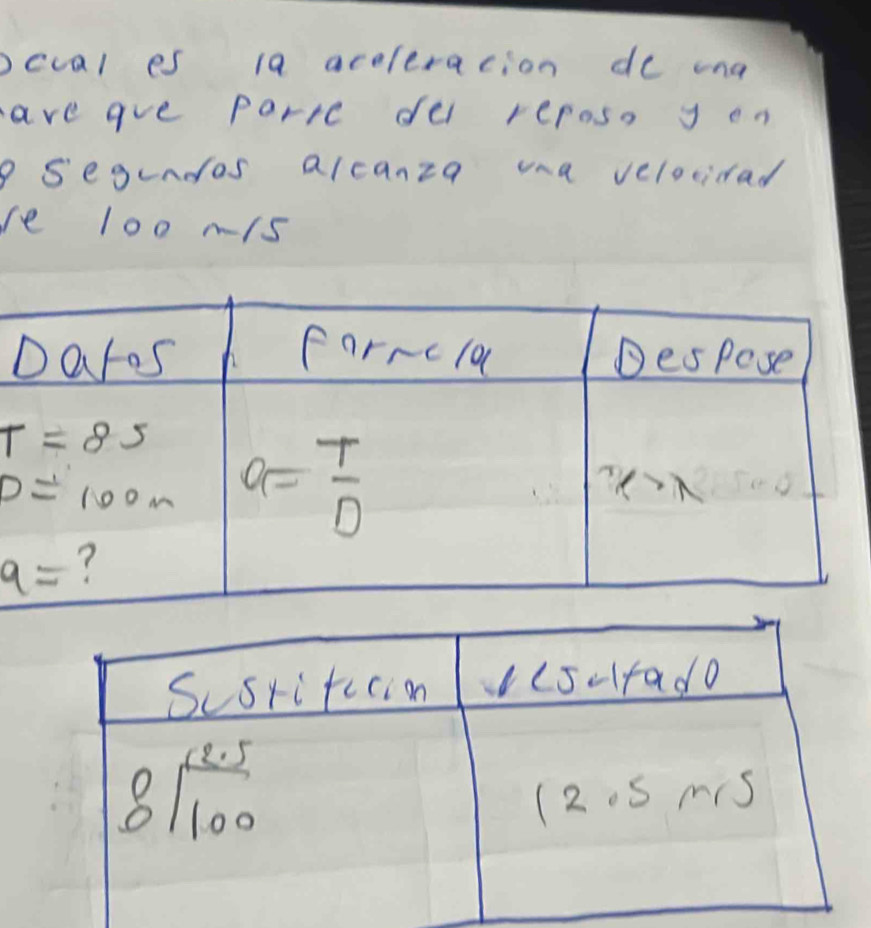 cual es la aceleracion de una
ave que parte del reposo y en
8 segundos alcanza una velocidad
de 100 m/s
Datos Formula Despeje
T = 8 s
D = 100 m
a = ?
a = T
D
Sustitucion resultado
12.5
8 100
12.5 m/s